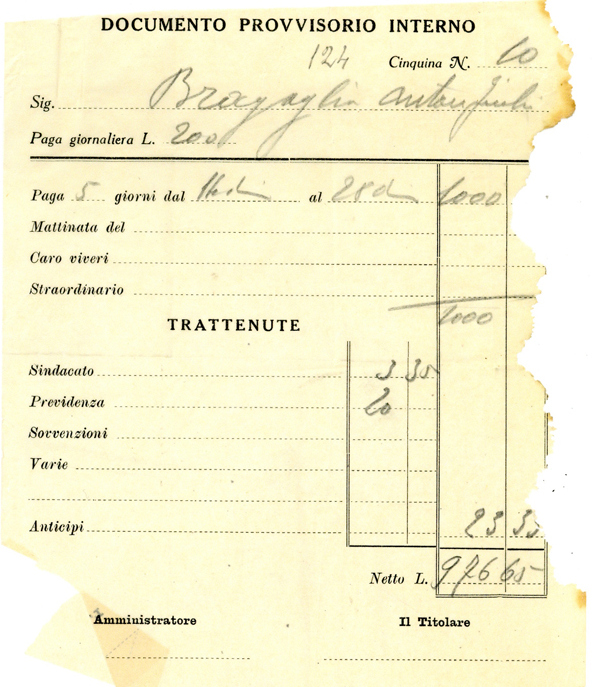 DOCUMENTO PROVVISORIO INTERNO
124 Cinquina N. 10
Sig. Bragaglia Anton Giulio
Paga giornaliera L. 200
Paga 5 giorni dal al 1000
Mattinata del
Caro viveri
Straordinario
1000
TRATTENUTE
Sindacato 3 35
Previdenza 20
Sovvenzioni
Varie
Anticipi 23 35
Netto L. 976 65
Amministratore Il Titolare